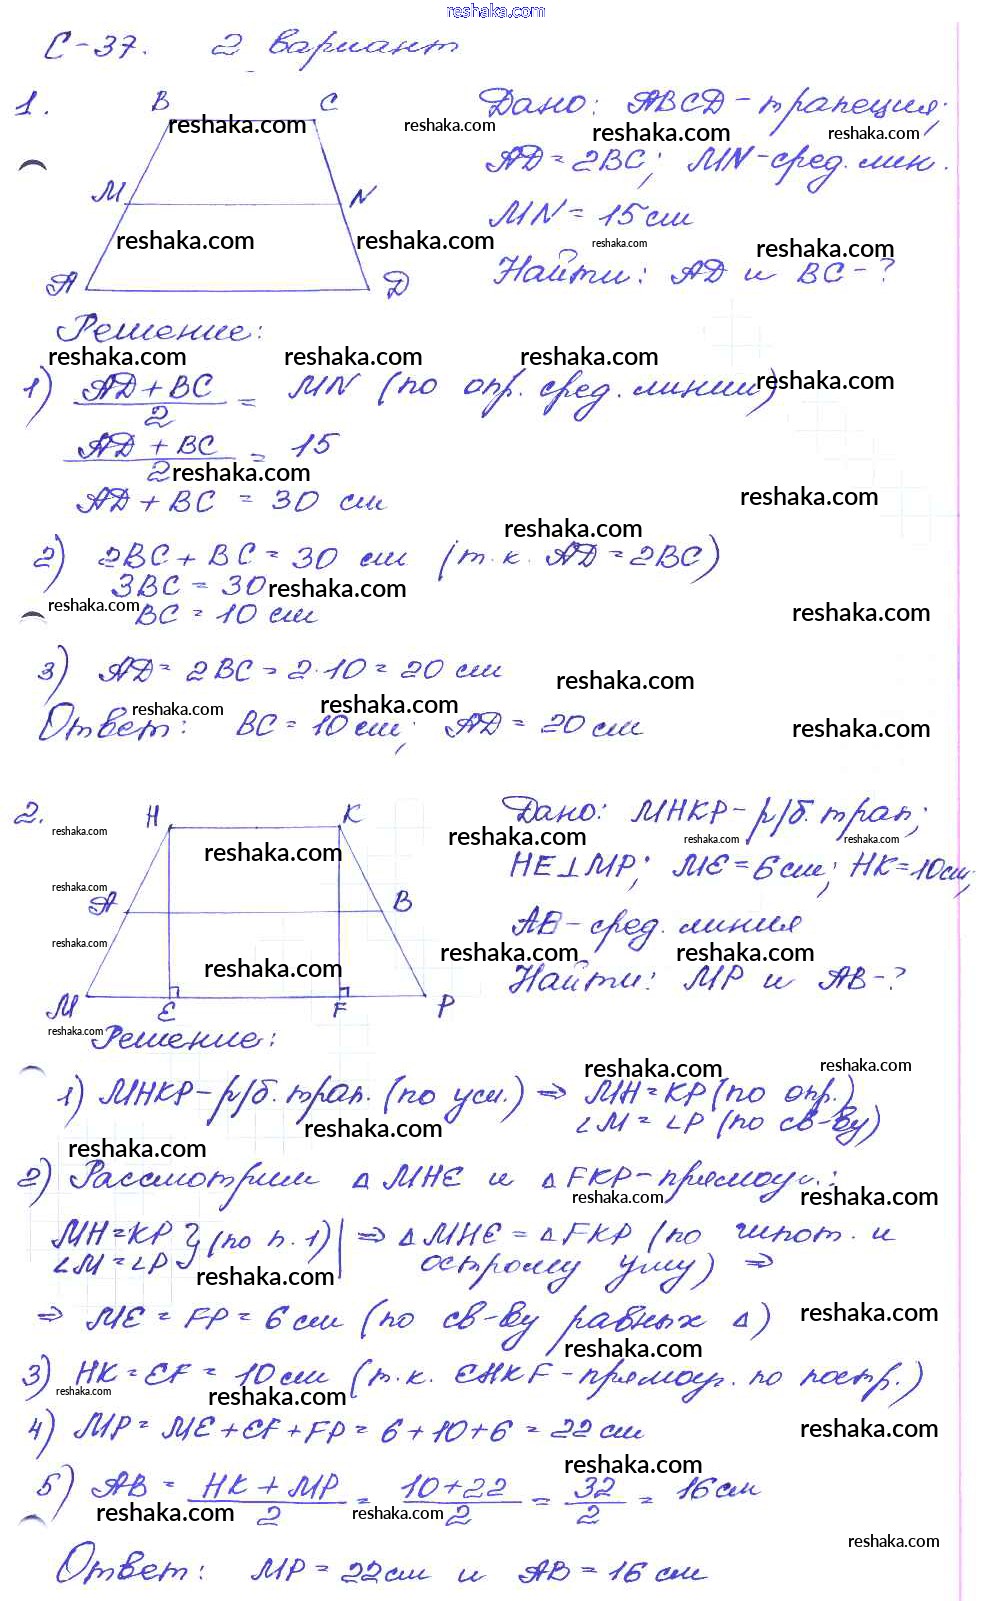 reshaka.com
С-37. 2 вариант
1. B C Дано: ABCD - трапеция;
AD = 2BC; MN - сред. лин.
M N MN = 15 см
A D Найти: AD и BC - ?
Решение:
1) AD + BC / 2 = MN (по опр. сред. линии)
AD + BC / 2 = 15
AD + BC = 30 см
2) 2BC + BC = 30 см (т.к. AD = 2BC)
3BC = 30
BC = 10 см
3) AD = 2BC = 2·10 = 20 см
Ответ: BC = 10 см; AD = 20 см
2. H K Дано: MHKP - р/б. трап;
HE⊥MP; ME = 6 см; HK = 10 см;
A B AB - сред. линия
Найти: MP и AB - ?
M E F P
Решение:
1) MHKP - р/б. трап. (по усл.) ⇒ MH = KP (по опр.)
∠M = ∠P (по св-ву)
2) Рассмотрим △MHE и △FKP - прямоуг.:
MH = KP } (по п. 1) | ⇒ △MHE = △FKP (по гипот. и
∠M = ∠P острому углу) ⇒
⇒ ME = FP = 6 см (по св-ву равных △)
3) HK = EF = 10 см (т.к. EHKF - прямоуг. по постр.)
4) MP = ME + EF + FP = 6 + 10 + 6 = 22 см
5) AB = HK + MP / 2 = 10 + 22 / 2 = 32 / 2 = 16 см
Ответ: MP = 22 см и AB = 16 см